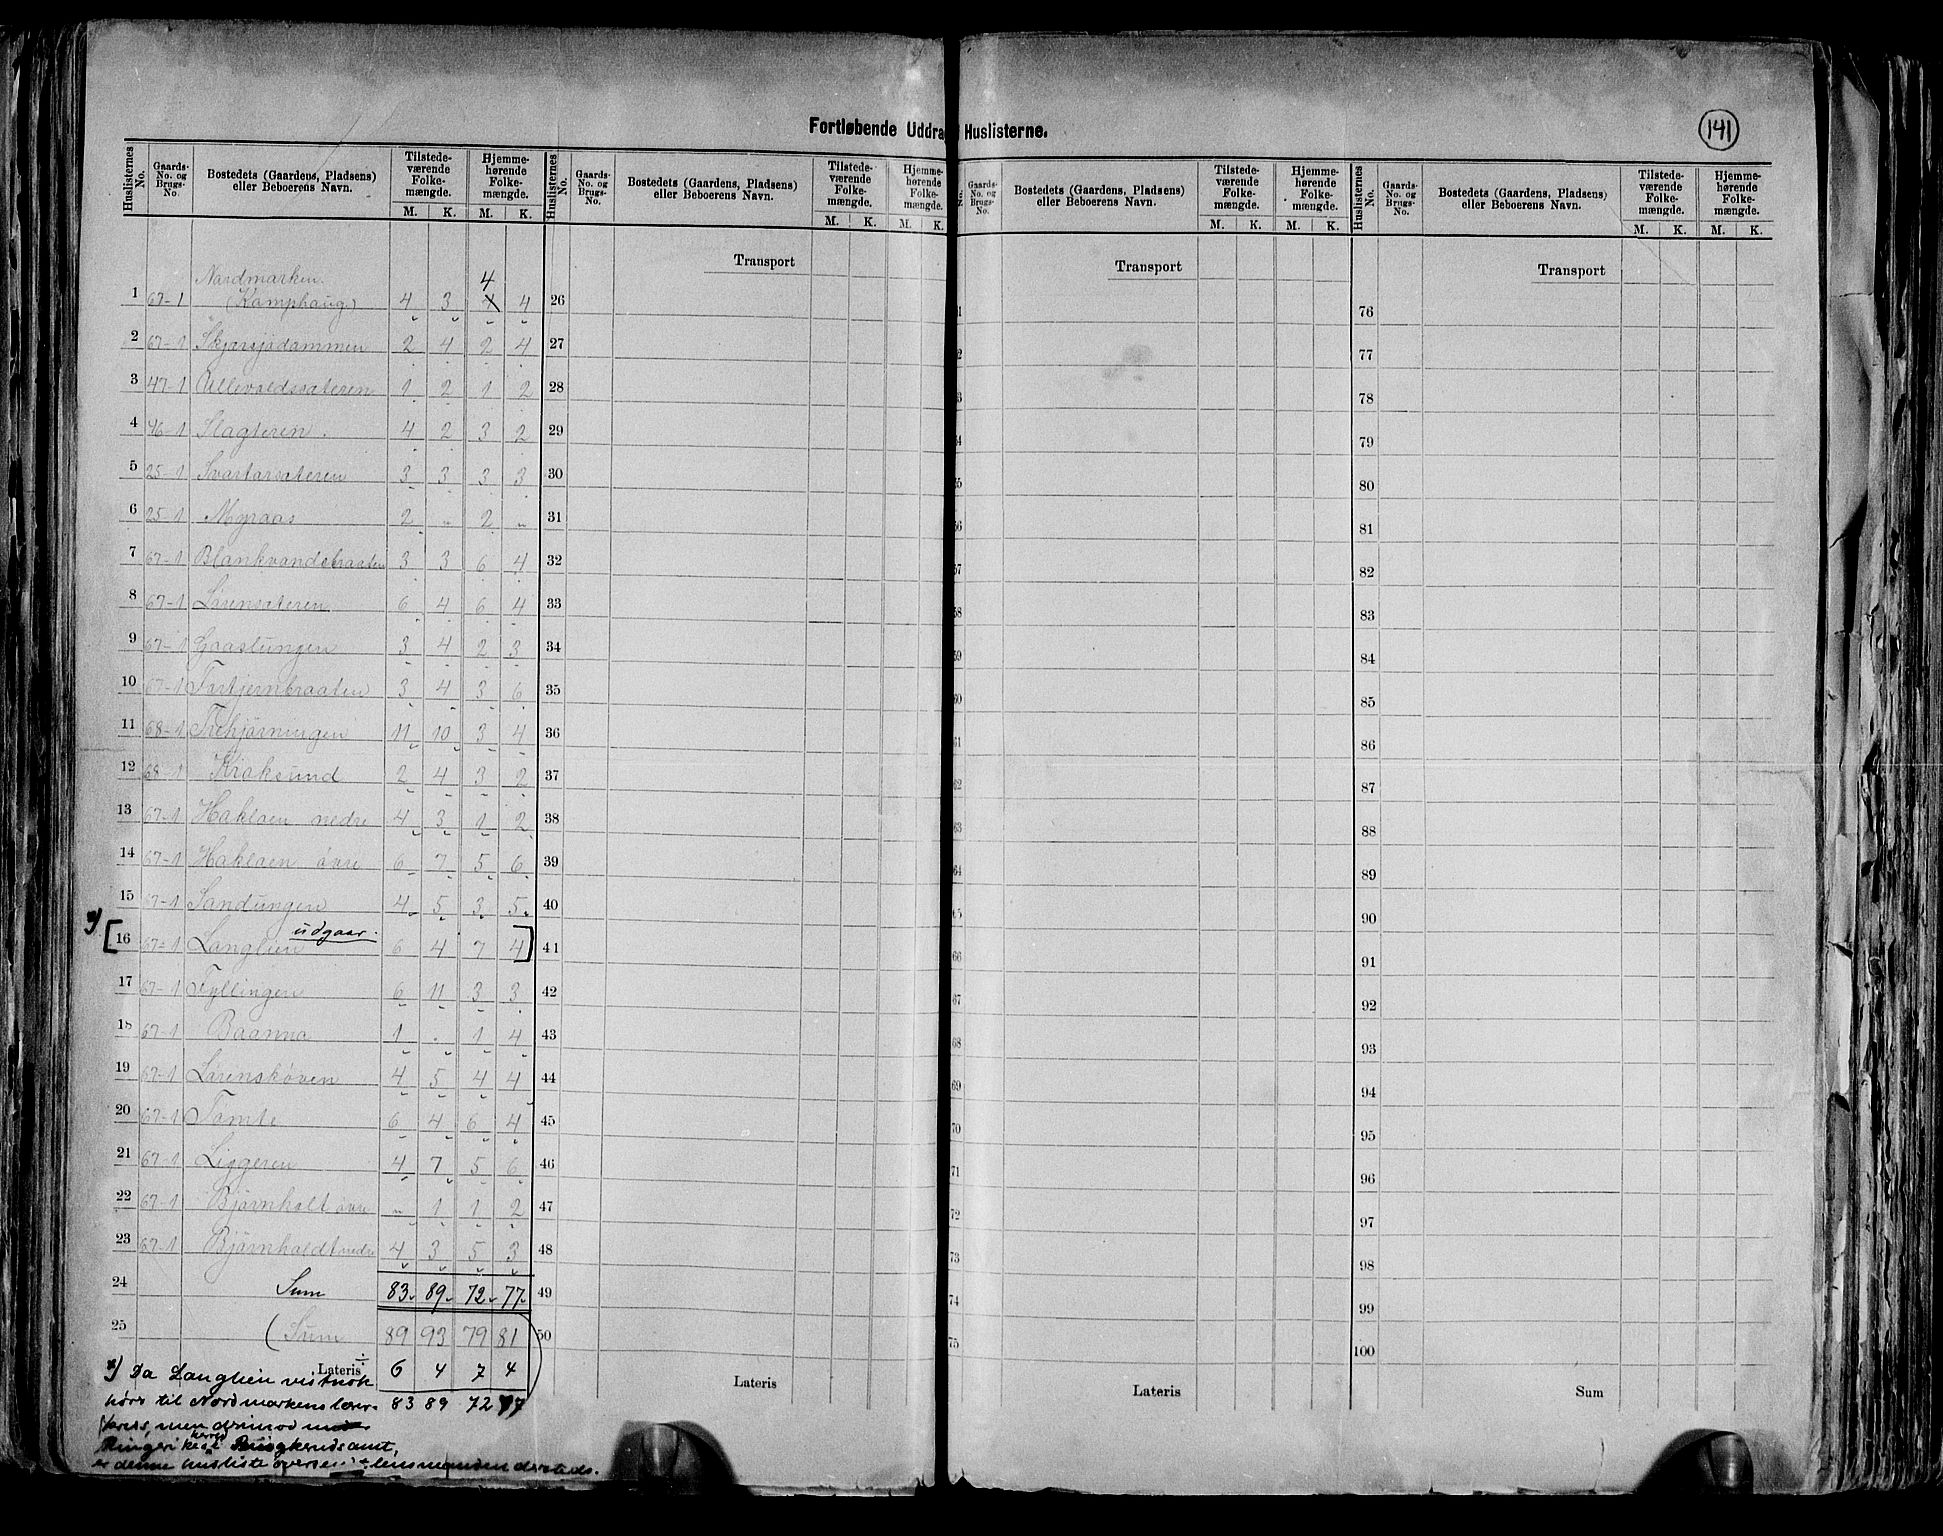 Fortløbende Uddra Huslisterne.
141
Huslisternes No. | Gaards-No. og Brugs-No. | Bostedets (Gaardens, Pladsens) eller Beboerens Navn. | Tilstedeværende Folkemængde. M. K. | Hjemmehørende Folkemængde. M. K.
Nordmarken.
4
1 67-1 (Kamphaug) 4 3 4 4
2 67-1 Skjærsjødammen 2 4 2 4
3 47-1 Ullevoldssæteren 1 2 1 2
4 46-1 Slagteren. 4 2 3 2
5 25-1 Svartorsæteren 3 3 3 3
6 25-1 Myraas 2 " 2 "
7 67-1 Blankvandsbraaten 3 3 6 4
8 67-1 Lørensæteren 6 4 6 4
9 67-1 Gaaslungen 3 4 2 3
10 67-1 Tortjernbraaten 3 4 3 6
11 68-1 Trehjørningen 11 10 3 4
12 68-1 Kroksund 2 4 3 2
13 67-1 Hakloen nedre 4 3 1 2
14 67-1 Hakloen øvre 6 7 5 6
15 67-1 Sandungen 4 5 3 5
udgaar.
x) [16 67-1 Langlien 6 4 7 4]
17 67-1 Fyllingen 6 11 3 3
18 67-1 Baanna 1 . 1 4
19 67-1 Lørenskoven 4 5 4 4
20 67-1 Tømte 6 4 6 4
21 67-1 Liggeren 4 7 5 6
22 67-1 Bjørnholt øvre " 1 1 2
23 67-1 Bjørnholdt nedre 4 3 5 3
24 Sum 83 89 72 77
25 (Sum 89 93 79 81
Lateris ÷ 6 4 7 4
83 89 72 77
x) Da Langlien vistnok
hører til Nordmarkens
kreds, men derimod
Ringerike herred Buskeruds amt,
er denne husliste oversendt lensmanden dersteds.
Huslisternes No. | Gaards-No. og Brugs-No. | Bostedets (Gaardens, Pladsens) eller Beboerens Navn. | Tilstedeværende Folkemængde. M. K. | Hjemmehørende Folkemængde. M. K.
Transport
26
27
28
29
30
31
32
33
34
35
36
37
38
39
40
41
42
43
44
45
46
47
48
49
50
Lateris
No. | Gaards-No. og Brugs-No. | Bostedets (Gaardens, Pladsens) eller Beboerens Navn. | Tilstedeværende Folkemængde. M. K. | Hjemmehørende Folkemængde. M. K.
Transport
1
2
3
54
55
56
57
58
59
60
61
62
63
64
65
66
67
68
69
70
71
72
73
74
75
Lateris
Huslisternes No. | Gaards-No. og Brugs-No. | Bostedets (Gaardens, Pladsens) eller Beboerens Navn. | Tilstedeværende Folkemængde. M. K. | Hjemmehørende Folkemængde. M. K.
Transport
76
77
78
79
80
81
82
83
84
85
86
87
88
89
90
91
92
93
94
95
96
97
98
99
100
Sum